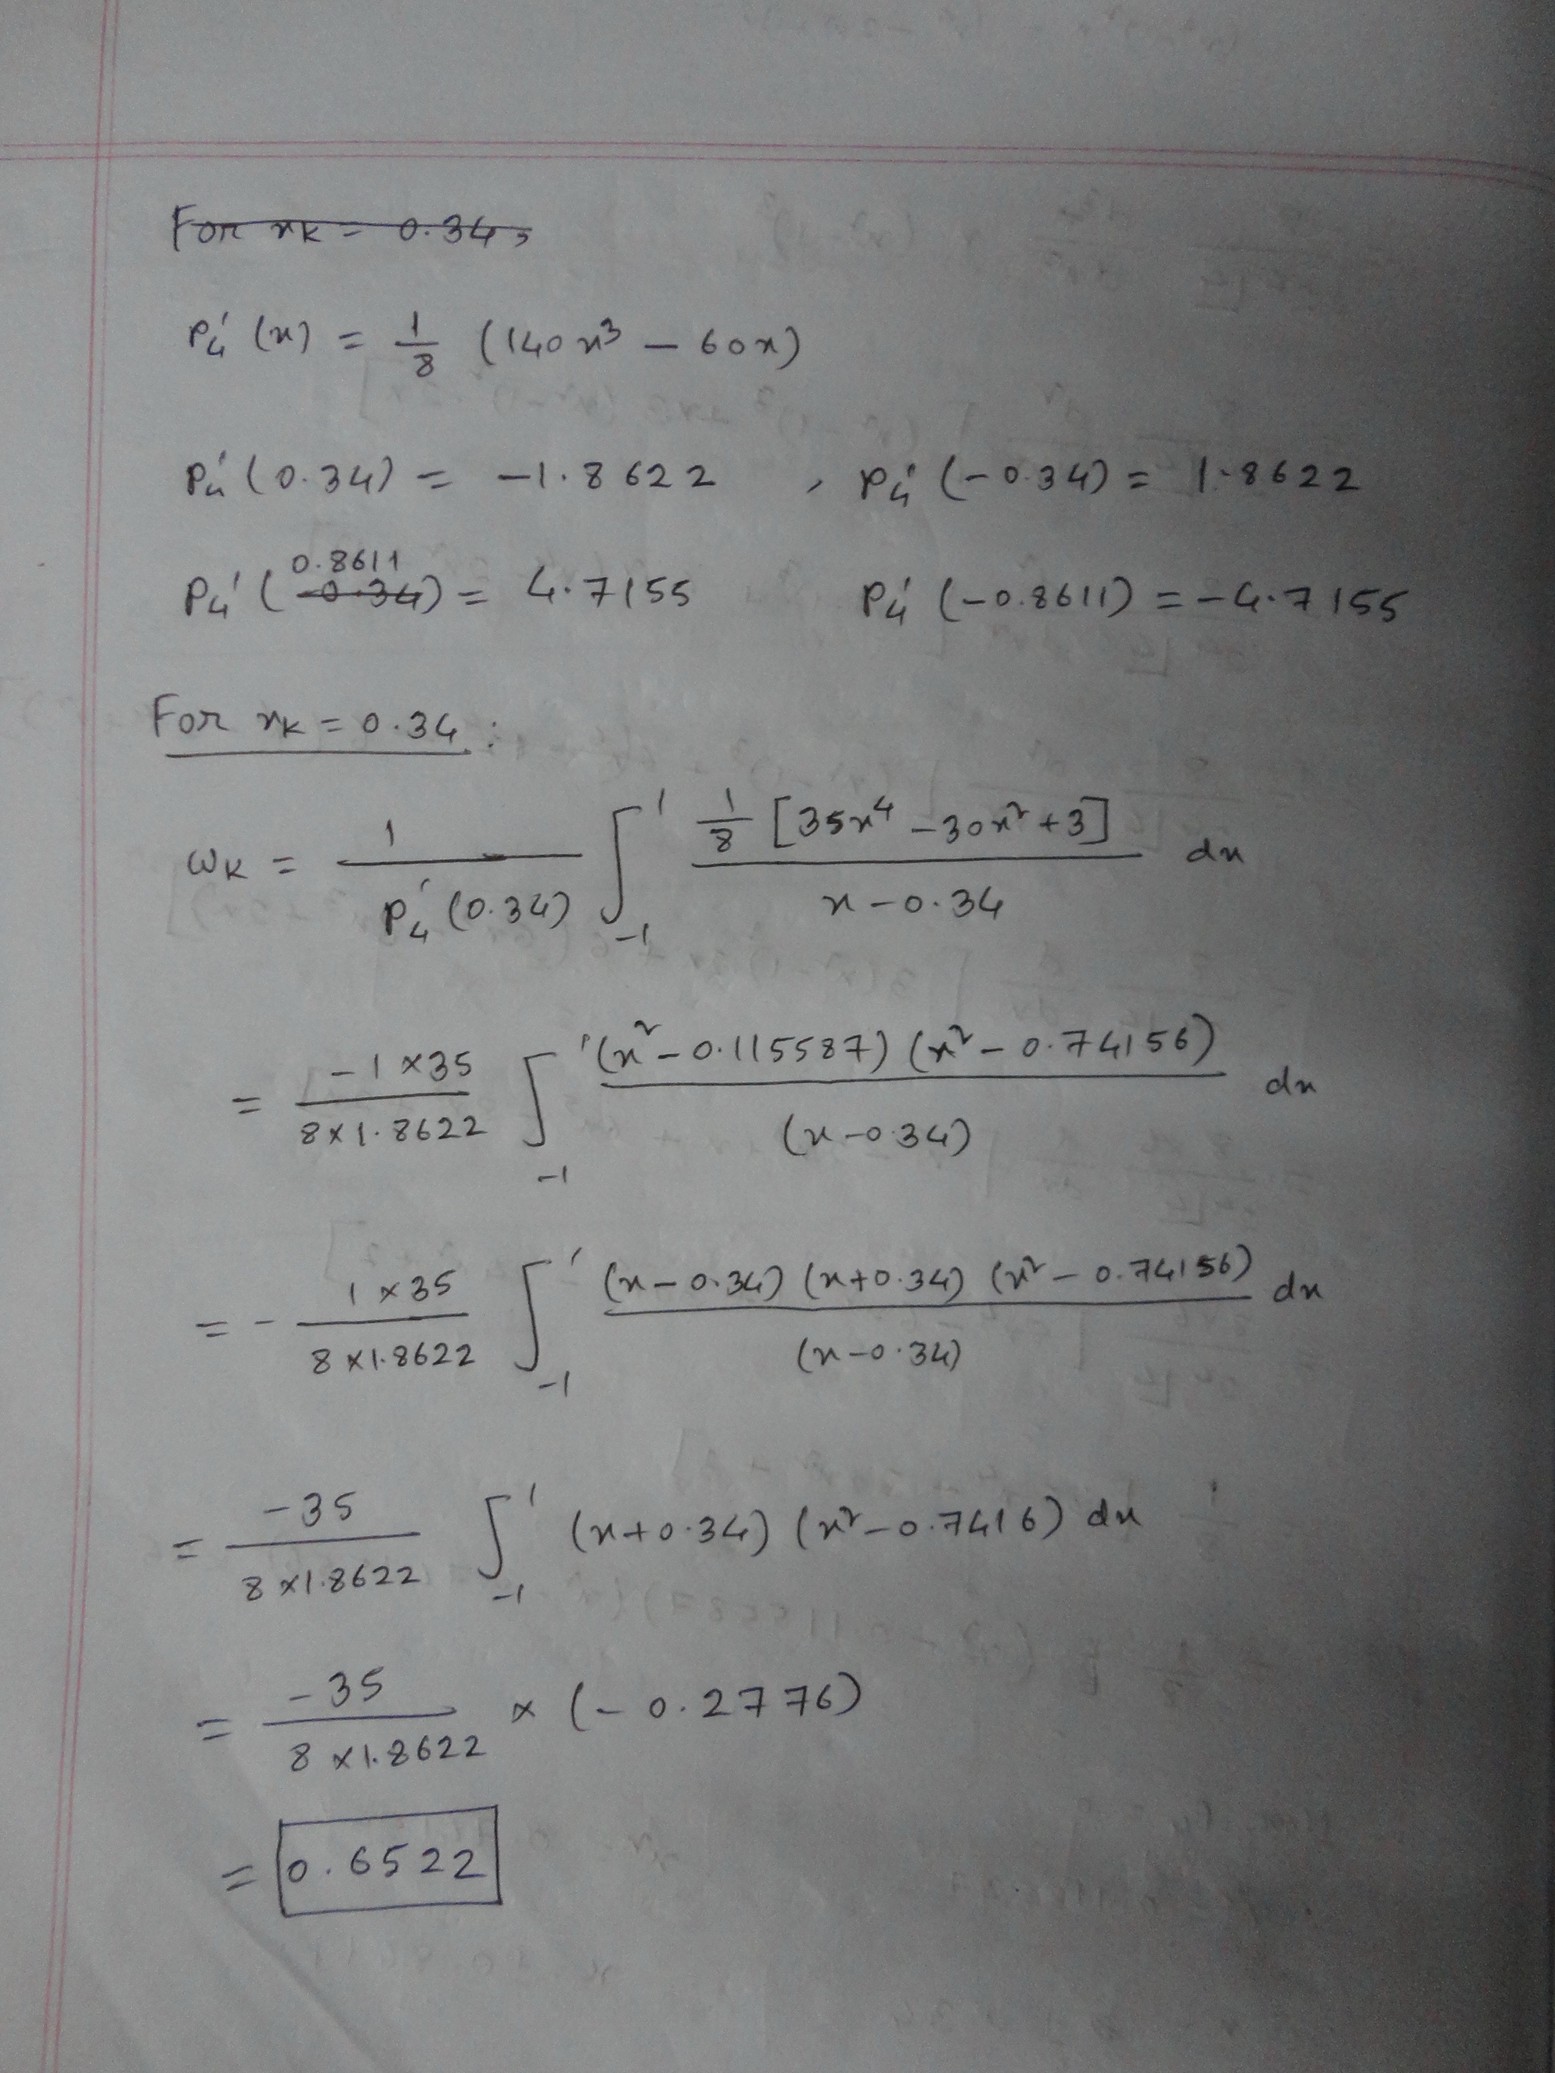 For xk = 0.34,
P₄′ (x) = 1/8 (140x³ − 60x)
P₄′ (0.34) = −1.8622 , P₄′ (−0.34) = 1.8622
0.8611
P₄′ (-0.34) = 4.7155 P₄′ (−0.8611) = −4.7155
For xk = 0.34 :
ωk = 1/P₄′(0.34) ∫₋₁¹ 1/8 [35x⁴ − 30x² + 3] / x − 0.34 dx
= −1×35 / 8×1.8622 ∫₋₁¹ (x² − 0.115587) (x² − 0.74156) / (x − 0.34) dx
= − 1×35 / 8×1.8622 ∫₋₁¹ (x − 0.34) (x + 0.34) (x² − 0.74156) / (x − 0.34) dx
= −35 / 8×1.8622 ∫₋₁¹ (x + 0.34) (x² − 0.7416) dx
= −35 / 8×1.8622 × (−0.2776)
= 0.6522